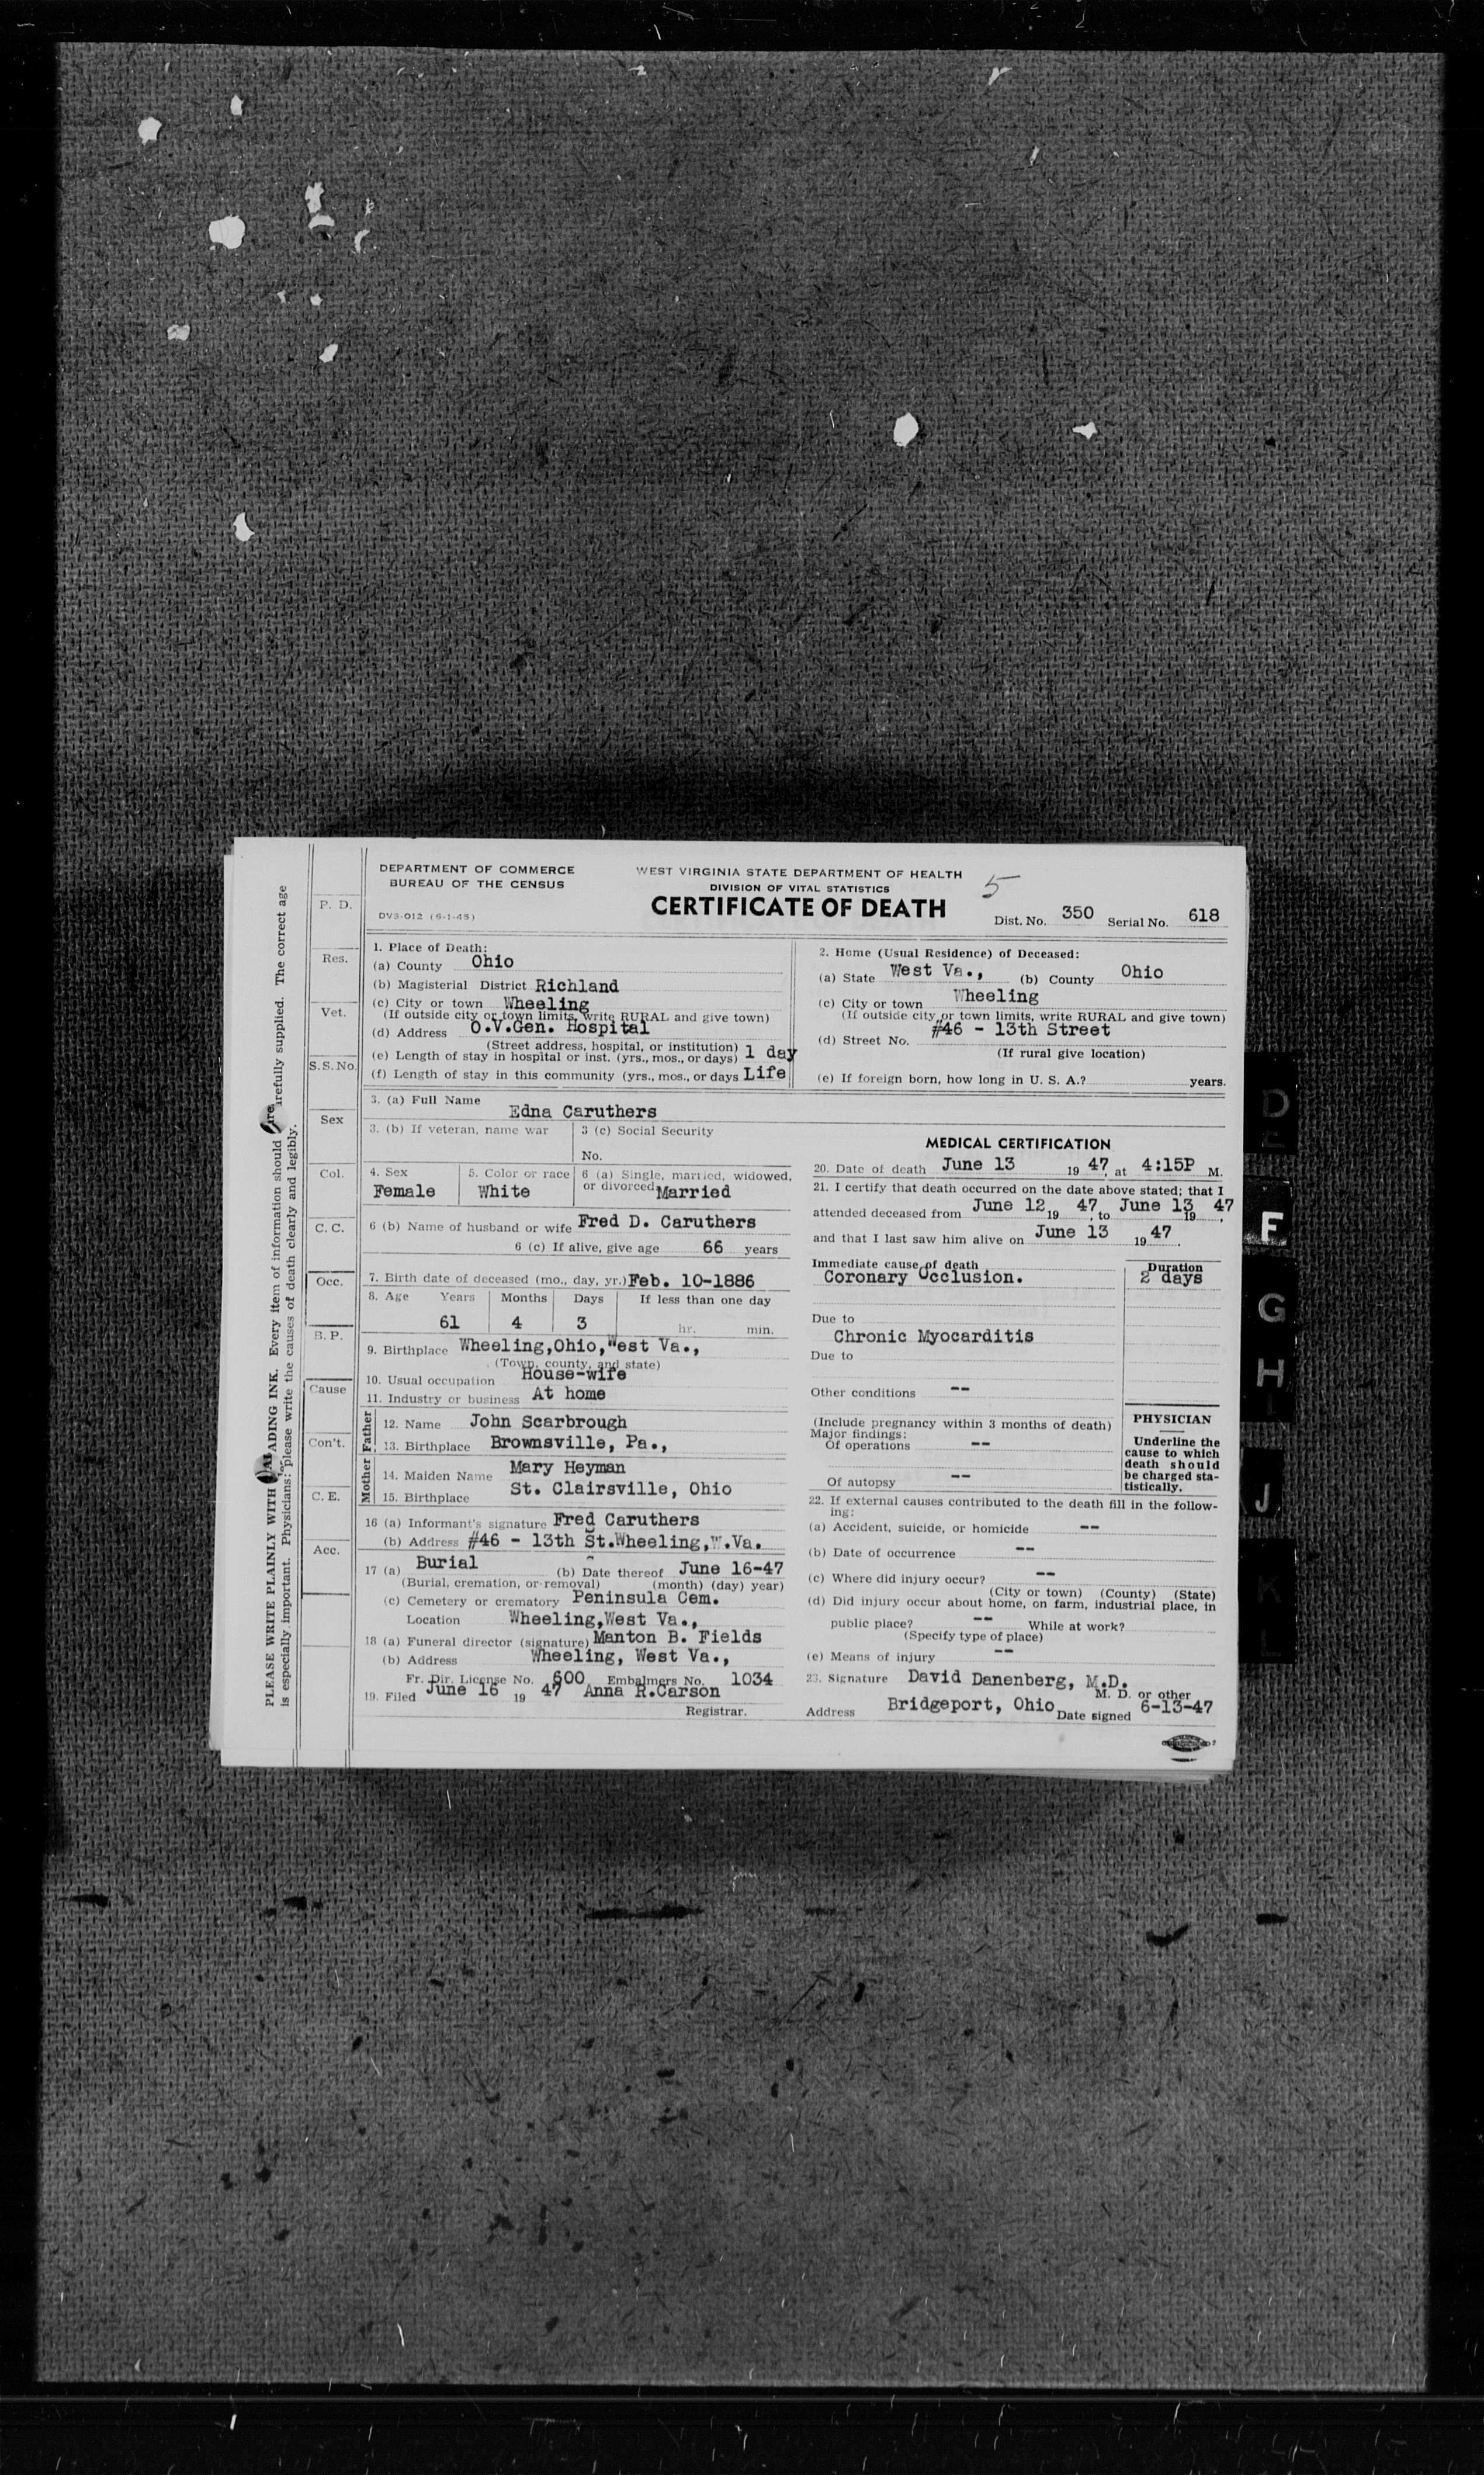 DEPARTMENT OF COMMERCE
BUREAU OF THE CENSUS
DVS-012 (6-1-45)
WEST VIRGINIA STATE DEPARTMENT OF HEALTH
DIVISION OF VITAL STATISTICS
CERTIFICATE OF DEATH
5
Dist. No. 350 Serial No. 618
PLEASE WRITE PLAINLY WITH ADING INK. Every item of information should are arefully supplied. The correct age
is especially important. Physicians: please write the causes of death clearly and legibly.
P. D.
Res.
Vet.
S.S. No.
Sex
Col.
C. C.
Occ.
B. P.
Cause
Con't.
C. E.
Acc.
1. Place of Death:
(a) County Ohio
(b) Magisterial District Richland
(c) City or town Wheeling
(If outside city or town limits, write RURAL and give town)
(d) Address O.V.Gen. Hospital
(Street address, hospital, or institution)
(e) Length of stay in hospital or inst. (yrs., mos., or days) 1 day
(f) Length of stay in this community (yrs., mos., or days Life
2. Home (Usual Residence) of Deceased:
(a) State West Va., (b) County Ohio
(c) City or town Wheeling
(If outside city or town limits, write RURAL and give town)
(d) Street No. #46 - 13th Street
(If rural give location)
(e) If foreign born, how long in U. S. A.? years.
3. (a) Full Name Edna Caruthers
3. (b) If veteran, name war
3 (c) Social Security
No.
4. Sex Female
5. Color or race White
6 (a) Single, married, widowed,
or divorced Married
6 (b) Name of husband or wife Fred D. Caruthers
6 (c) If alive, give age 66 years
7. Birth date of deceased (mo., day, yr.) Feb. 10-1886
8. Age Years Months Days If less than one day
61 4 3 hr. min.
9. Birthplace Wheeling,Ohio,West Va.,
(Town, county, and state)
10. Usual occupation House-wife
11. Industry or business At home
Father
12. Name John Scarbrough
13. Birthplace Brownsville, Pa.,
Mother
14. Maiden Name Mary Heyman
15. Birthplace St. Clairsville, Ohio
16 (a) Informant's signature Fred Caruthers
(b) Address #46 - 13th St.Wheeling,W.Va.
17 (a) Burial (b) Date thereof June 16-47
(Burial, cremation, or removal) (month) (day) year)
(c) Cemetery or crematory Peninsula Cem.
Location Wheeling,West Va.,
18 (a) Funeral director (signature) Manton B. Fields
(b) Address Wheeling, West Va.,
Fr. Dir. License No. 600 Embalmers No. 1034
19. Filed June 16 19 47 Anna R.Carson
Registrar.
MEDICAL CERTIFICATION
20. Date of death June 13 19 47, at 4:15P M.
21. I certify that death occurred on the date above stated; that I
attended deceased from June 12 19 47, to June 13 19 47,
and that I last saw him alive on June 13 19 47.
Immediate cause of death Duration
Coronary Occlusion. 2 days
Due to
Chronic Myocarditis
Due to
Other conditions --
(Include pregnancy within 3 months of death)
Major findings:
Of operations --
Of autopsy --
PHYSICIAN
Underline the
cause to which
death should
be charged sta-
tistically.
22. If external causes contributed to the death fill in the follow-
ing:
(a) Accident, suicide, or homicide --
(b) Date of occurrence --
(c) Where did injury occur? --
(City or town) (County) (State)
(d) Did injury occur about home, on farm, industrial place, in
public place? -- While at work?
(Specify type of place)
(e) Means of injury --
23. Signature David Danenberg, M.D.
M. D. or other
Address Bridgeport, Ohio Date signed 6-13-47
D
E
F
G
H
I
J
K
L